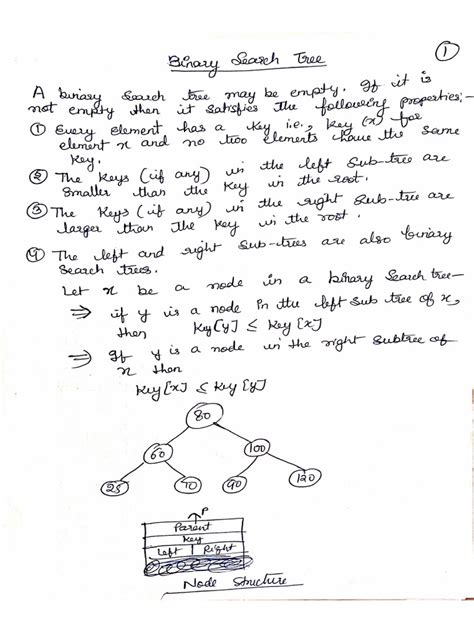 1
Binary Search Tree
A binary search tree may be empty. If it is
not empty then it satisfies the following properties:-
1 Every element has a key i.e., key (x) for
element x and no two elements have the same
key.
2 The keys (if any) in the left sub-tree are
smaller than the key in the root.
3 The keys (if any) in the right sub-tree are
larger than the key in the root.
4 The left and right sub-trees are also binary
search trees.
Let x be a node in a binary search tree-
⇒ if y is a node in the left sub tree of x,
then Key[y] ≤ Key[x]
⇒ If y is a node in the right subtree of
x then
Key[x] ≤ Key[y]
80
60 100
25 70 90 120
P
Parent
Key
Left Right
Node Structure